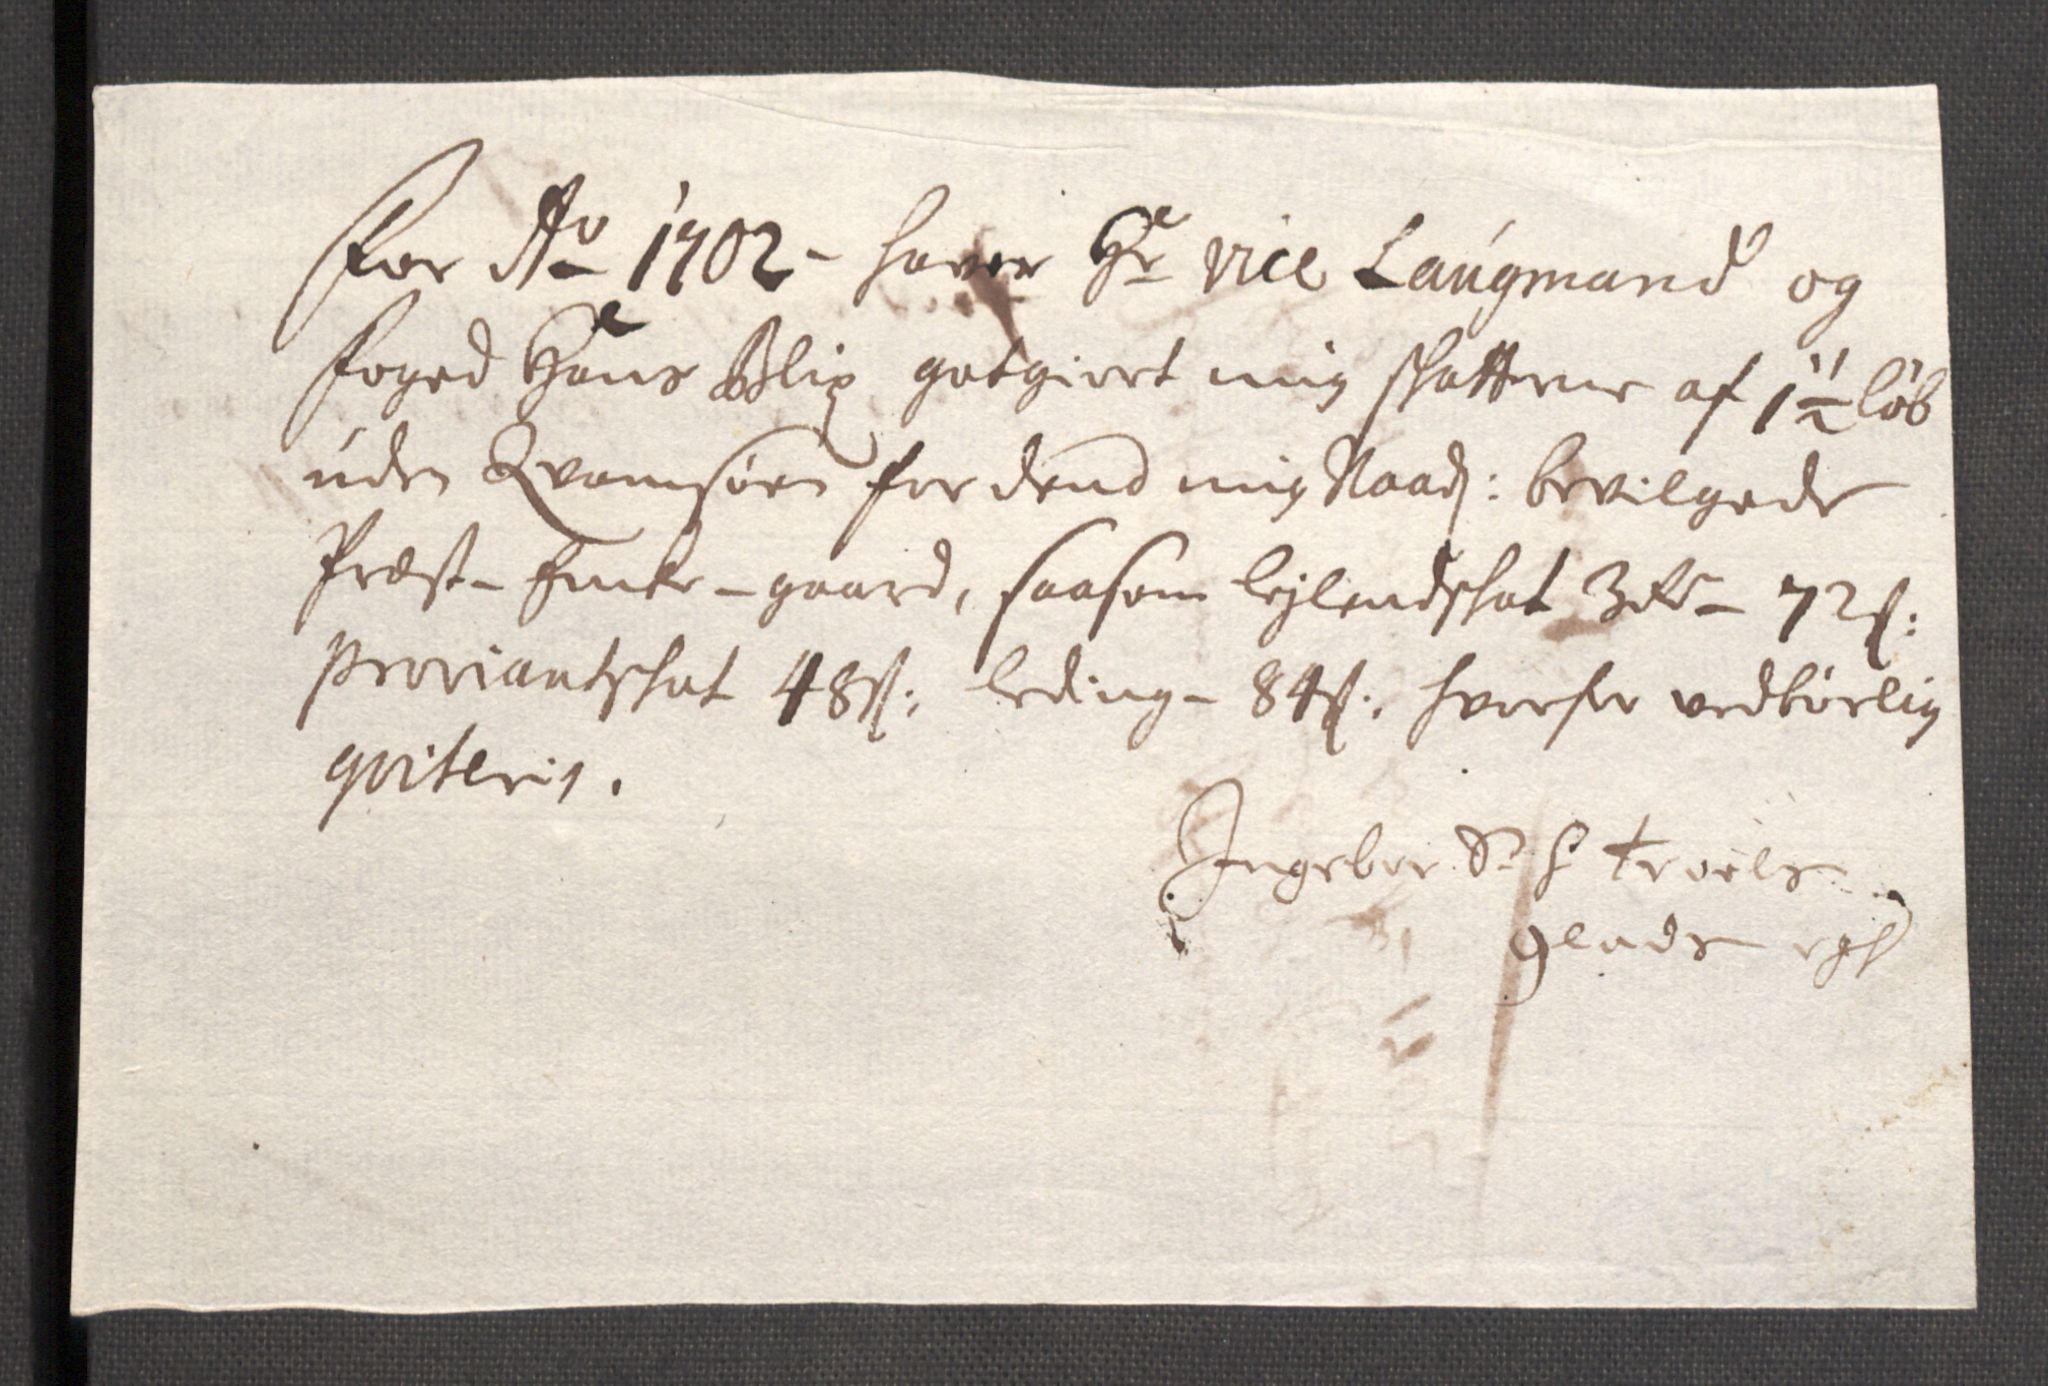 For Ao 1702 - haver Hr vice Laugmand og
foged Hans Blix gotgiort mig skatterne af 1 1/2 løb
uden Qvamsøen for dend mig Naad: bevilgede
Præst-Encke-gaard, saasom lejlendschat 3 Rdr - 72 ß:
Proviantschat 48 ß: leding - 84 ß: hvorfor vedbørlig
qviteris.
Ingebor Sl. H Troels